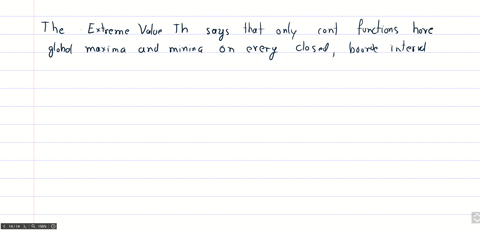 The Extreme Value Th says that only cont functions have
global maxima and minima on every closed, interval
14 / 14
100%